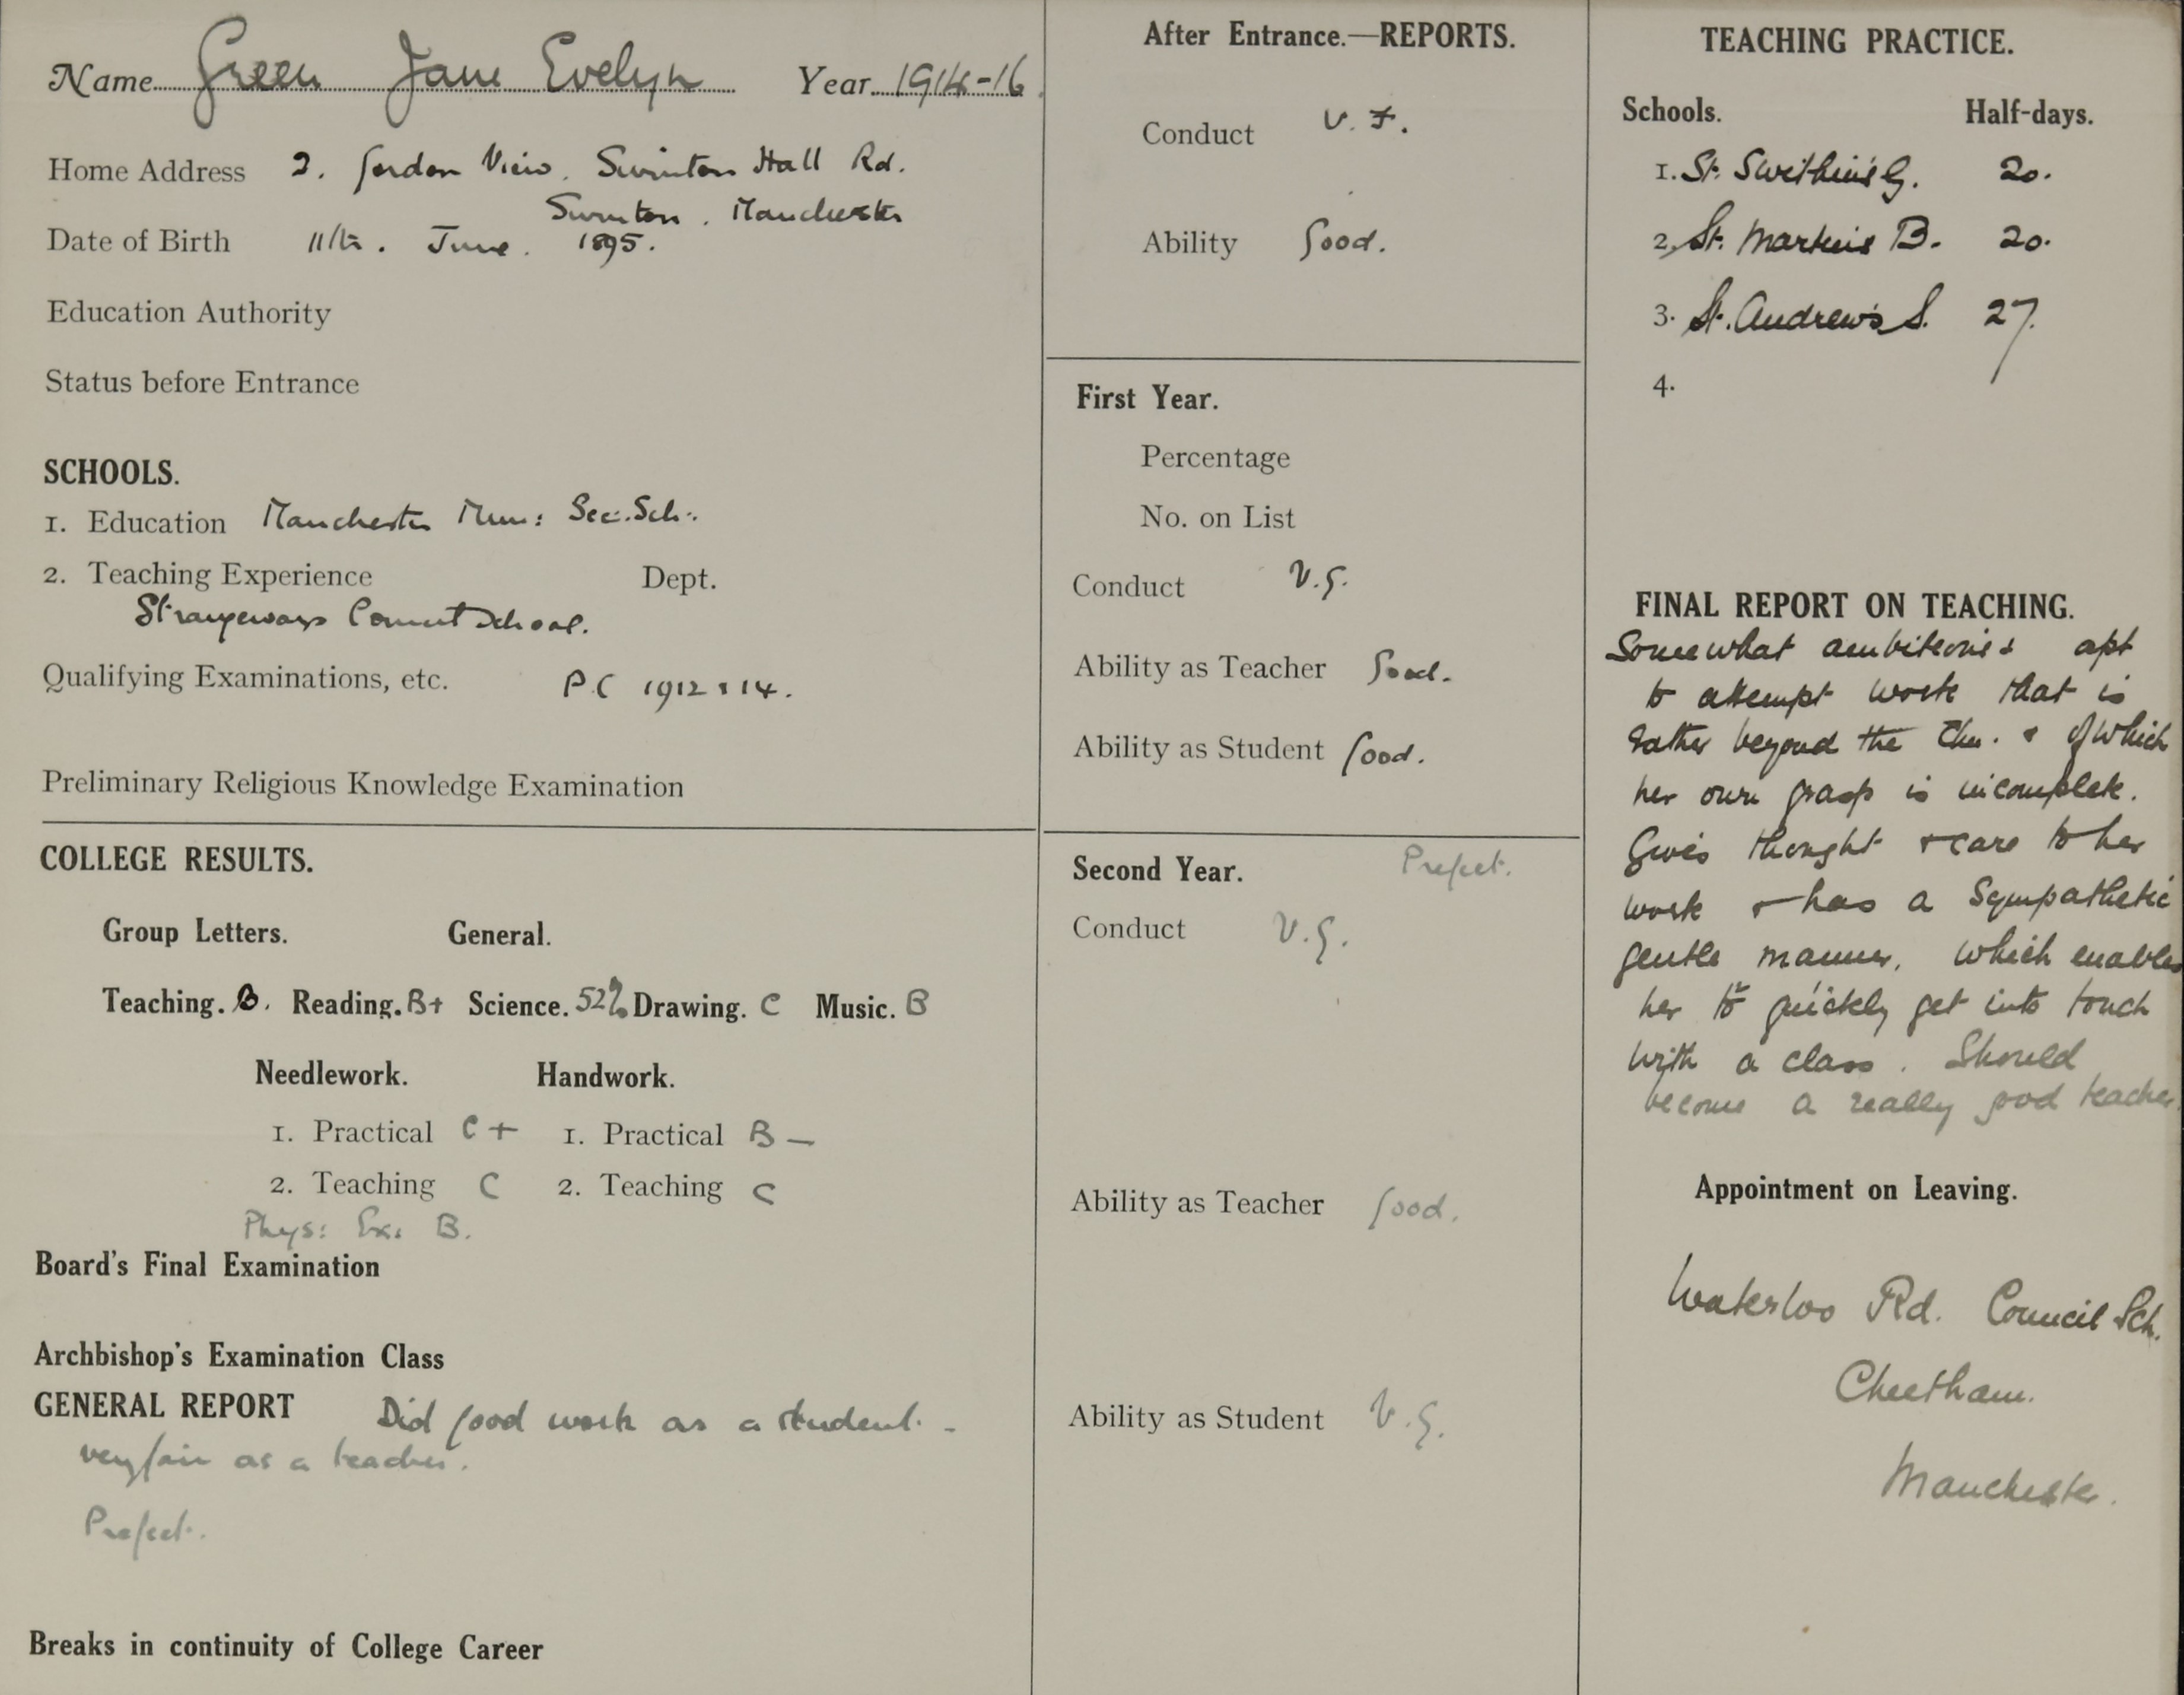 Name Green Jane Evelyn Year 1914-16.
Home Address 2. Gordon View. Swinton Hall Rd.
Swinton. Manchester
Date of Birth 11th. June. 1895.
Education Authority
Status before Entrance
SCHOOLS.
1. Education Manchester Mun: Sec. Sch.
2. Teaching Experience Dept.
Strangeways Council School.
Qualifying Examinations, etc. P.C 1912 & 14.
Preliminary Religious Knowledge Examination
COLLEGE RESULTS.
Group Letters. General.
Teaching. B. Reading. B+ Science. 52% Drawing. C Music. B
Needlework. Handwork.
1. Practical C+ 1. Practical B-
2. Teaching C 2. Teaching C
Phys: Ex: B.
Board's Final Examination
Archbishop's Examination Class
GENERAL REPORT Did good work as a student. -
very fair as a teacher.
Prefect.
Breaks in continuity of College Career
After Entrance.—REPORTS.
Conduct V. F.
Ability Good.
First Year.
Percentage
No. on List
Conduct V.G.
Ability as Teacher Good.
Ability as Student Good.
Second Year. Prefect.
Conduct V.G.
Ability as Teacher Good.
Ability as Student V.G.
TEACHING PRACTICE.
Schools. Half-days.
1. St. Swithin's G. 20.
2. St. Martin's B. 20.
3. St. Andrew's S. 27.
4.
FINAL REPORT ON TEACHING.
Somewhat ambitious & apt
to attempt work that is
rather beyond the Chn. & of which
her own grasp is incomplete.
Gives thought & care to her
work & has a sympathetic
gentle manner, which enables
her to quickly get into touch
with a class. Should
become a really good teacher.
Appointment on Leaving.
Waterloo Rd. Council Sch.
Cheetham.
Manchester.